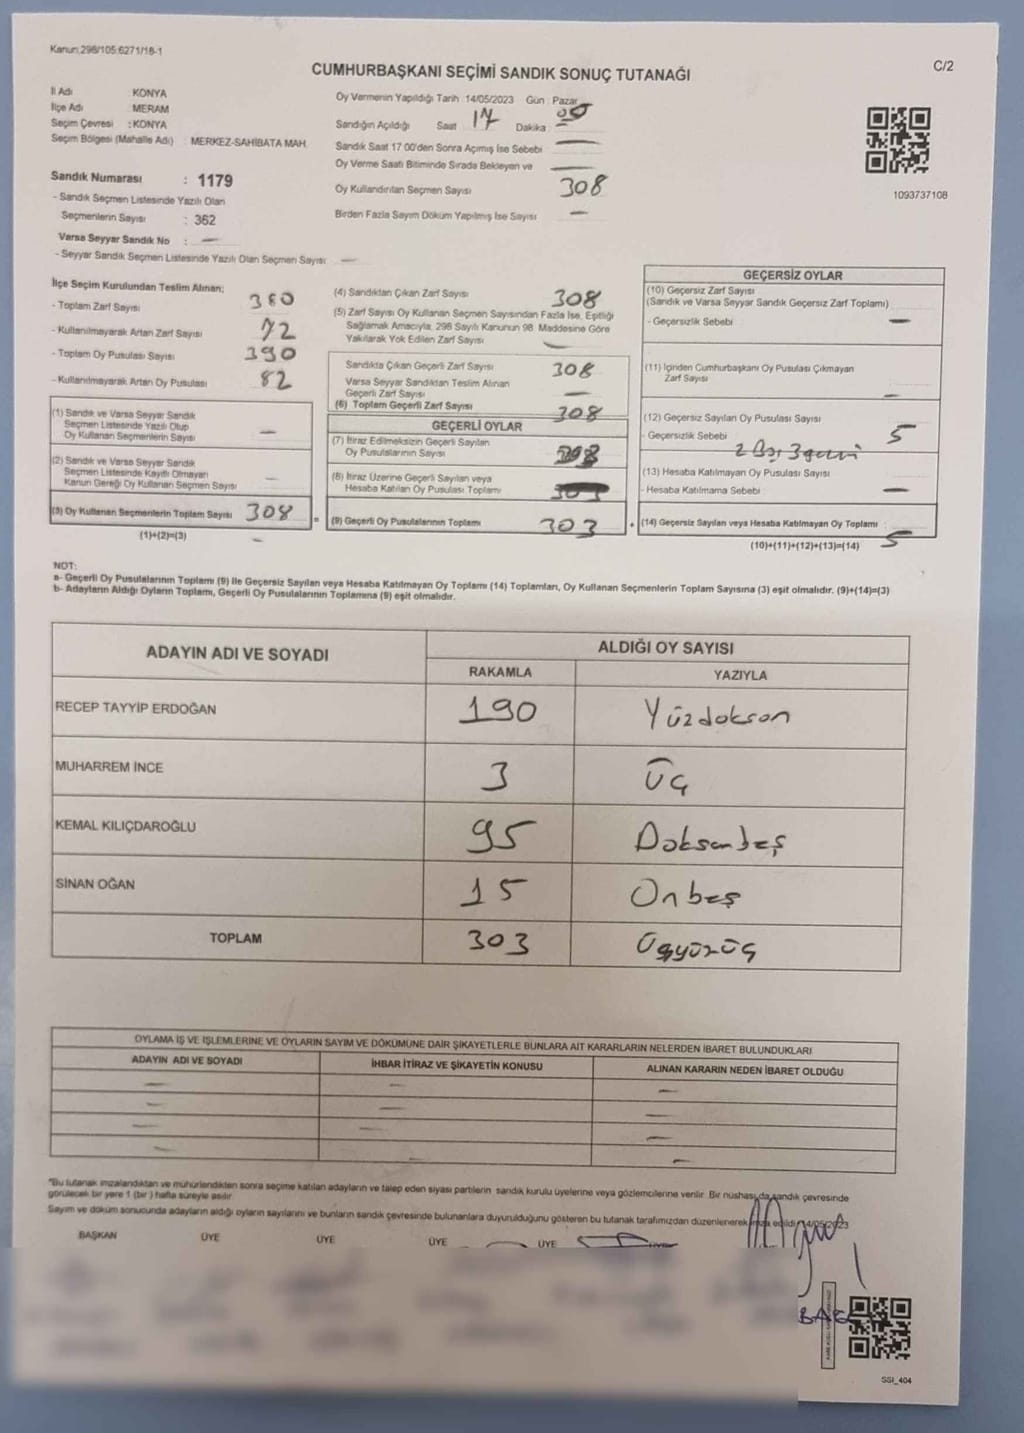 Kanun:298/105:6271/18-1
C/2
CUMHURBAŞKANI SEÇİMİ SANDIK SONUÇ TUTANAĞI
İl Adı : KONYA
İlçe Adı : MERAM
Seçim Çevresi : KONYA
Seçim Bölgesi (Mahalle Adı) : MERKEZ-SAHİBATA MAH.
Sandık Numarası : 1179
- Sandık Seçmen Listesinde Yazılı Olan
Seçmenlerin Sayısı : 362
Varsa Seyyar Sandık No : —
- Seyyar Sandık Seçmen Listesinde Yazılı Olan Seçmen Sayısı —
Oy Vermenin Yapıldığı Tarih :14/05/2023 Gün : Pazar
Sandığın Açıldığı Saat 17 Dakika 00
Sandık Saat 17:00'den Sonra Açımış İse Sebebi —
Oy Verme Saati Bitiminde Sırada Bekleyen ve —
Oy Kullandırılan Seçmen Sayısı 308
Birden Fazla Sayım Döküm Yapılmış İse Sayısı —
1093737108
İlçe Seçim Kurulundan Teslim Alınan:
- Toplam Zarf Sayısı 380
- Kullanılmayarak Artan Zarf Sayısı 72
- Toplam Oy Pusulası Sayısı 390
- Kullanılmayarak Artan Oy Pusulası 82
(1) Sandık ve Varsa Seyyar Sandık
Seçmen Listesinde Yazılı Olup
Oy Kullanan Seçmenlerin Sayısı —
(2) Sandık ve Varsa Seyyar Sandık
Seçmen Listesinde Kayıtlı Olmayan
Kanun Gereği Oy Kullanan Seçmen Sayısı —
(3) Oy Kullanan Seçmenlerin Toplam Sayısı 308
(1)+(2)=(3) —
(4) Sandıktan Çıkan Zarf Sayısı 308
(5) Zarf Sayısı Oy Kullanan Seçmen Sayısından Fazla İse, Eşitliği
Sağlamak Amacıyla; 298 Sayılı Kanunun 98. Maddesine Göre
Yakılarak Yok Edilen Zarf Sayısı —
Sandıkta Çıkan Geçerli Zarf Sayısı 308
Varsa Seyyar Sandıktan Teslim Alınan
Geçerli Zarf Sayısı —
(6) Toplam Geçerli Zarf Sayısı 308
GEÇERLİ OYLAR
(7) İtiraz Edilmeksizin Geçerli Sayılan
Oy Pusulalarının Sayısı
(8) İtiraz Üzerine Geçerli Sayılan veya
Hesaba Katılan Oy Pusulası Toplamı
= (9) Geçerli Oy Pusulalarının Toplamı 303
GEÇERSİZ OYLAR
(10) Geçersiz Zarf Sayısı
(Sandık ve Varsa Seyyar Sandık Geçersiz Zarf Toplamı)
- Geçersizlik Sebebi —
(11) İçinden Cumhurbaşkanı Oy Pusulası Çıkmayan
Zarf Sayısı —
(12) Geçersiz Sayılan Oy Pusulası Sayısı 5
- Geçersizlik Sebebi 2 Boş 3
(13) Hesaba Katılmayan Oy Pusulası Sayısı
- Hesaba Katılmama Sebebi —
+ (14) Geçersiz Sayılan veya Hesaba Katılmayan Oy Toplamı : 5
(10)+(11)+(12)+(13)=(14)
NOT:
a- Geçerli Oy Pusulalarının Toplamı (9) ile Geçersiz Sayılan veya Hesaba Katılmayan Oy Toplamı (14) Toplamları, Oy Kullanan Seçmenlerin Toplam Sayısına (3) eşit olmalıdır. (9)+(14)=(3)
b- Adayların Aldığı Oyların Toplamı, Geçerli Oy Pusulalarının Toplamına (9) eşit olmalıdır.
ADAYIN ADI VE SOYADI ALDIĞI OY SAYISI
RAKAMLA YAZIYLA
RECEP TAYYİP ERDOĞAN 190 Yüzdokson
MUHARREM İNCE 3 Üç
KEMAL KILIÇDAROĞLU 95 Doksanbeş
SİNAN OĞAN 15 Onbeş
TOPLAM 303 Üçyüzüç
OYLAMA İŞ VE İŞLEMLERİNE VE OYLARIN SAYIM VE DÖKÜMÜNE DAİR ŞİKAYETLERLE BUNLARA AİT KARARLARIN NELERDEN İBARET BULUNDUKLARI
ADAYIN ADI VE SOYADI İHBAR İTİRAZ VE ŞİKAYETİN KONUSU ALINAN KARARIN NEDEN İBARET OLDUĞU
— — —
— — —
— — —
— — —
*Bu tutanak imzalandıktan ve mühürlendikten sonra seçime katılan adayların ve talep eden siyasi partilerin sandık kurulu üyelerine veya gözlemcilerine verilir. Bir nüshası da sandık çevresinde
görülecek bir yere 1 (bir ) hafta süreyle asılır.
Sayım ve döküm sonucunda adayların aldığı oyların sayılarını ve bunların sandık çevresinde bulunanlara duyurulduğunu gösteren bu tutanak tarafımızdan düzenlenerek imza edildi. 14/05/2023
BAŞKAN ÜYE ÜYE ÜYE ÜYE
SSI_404